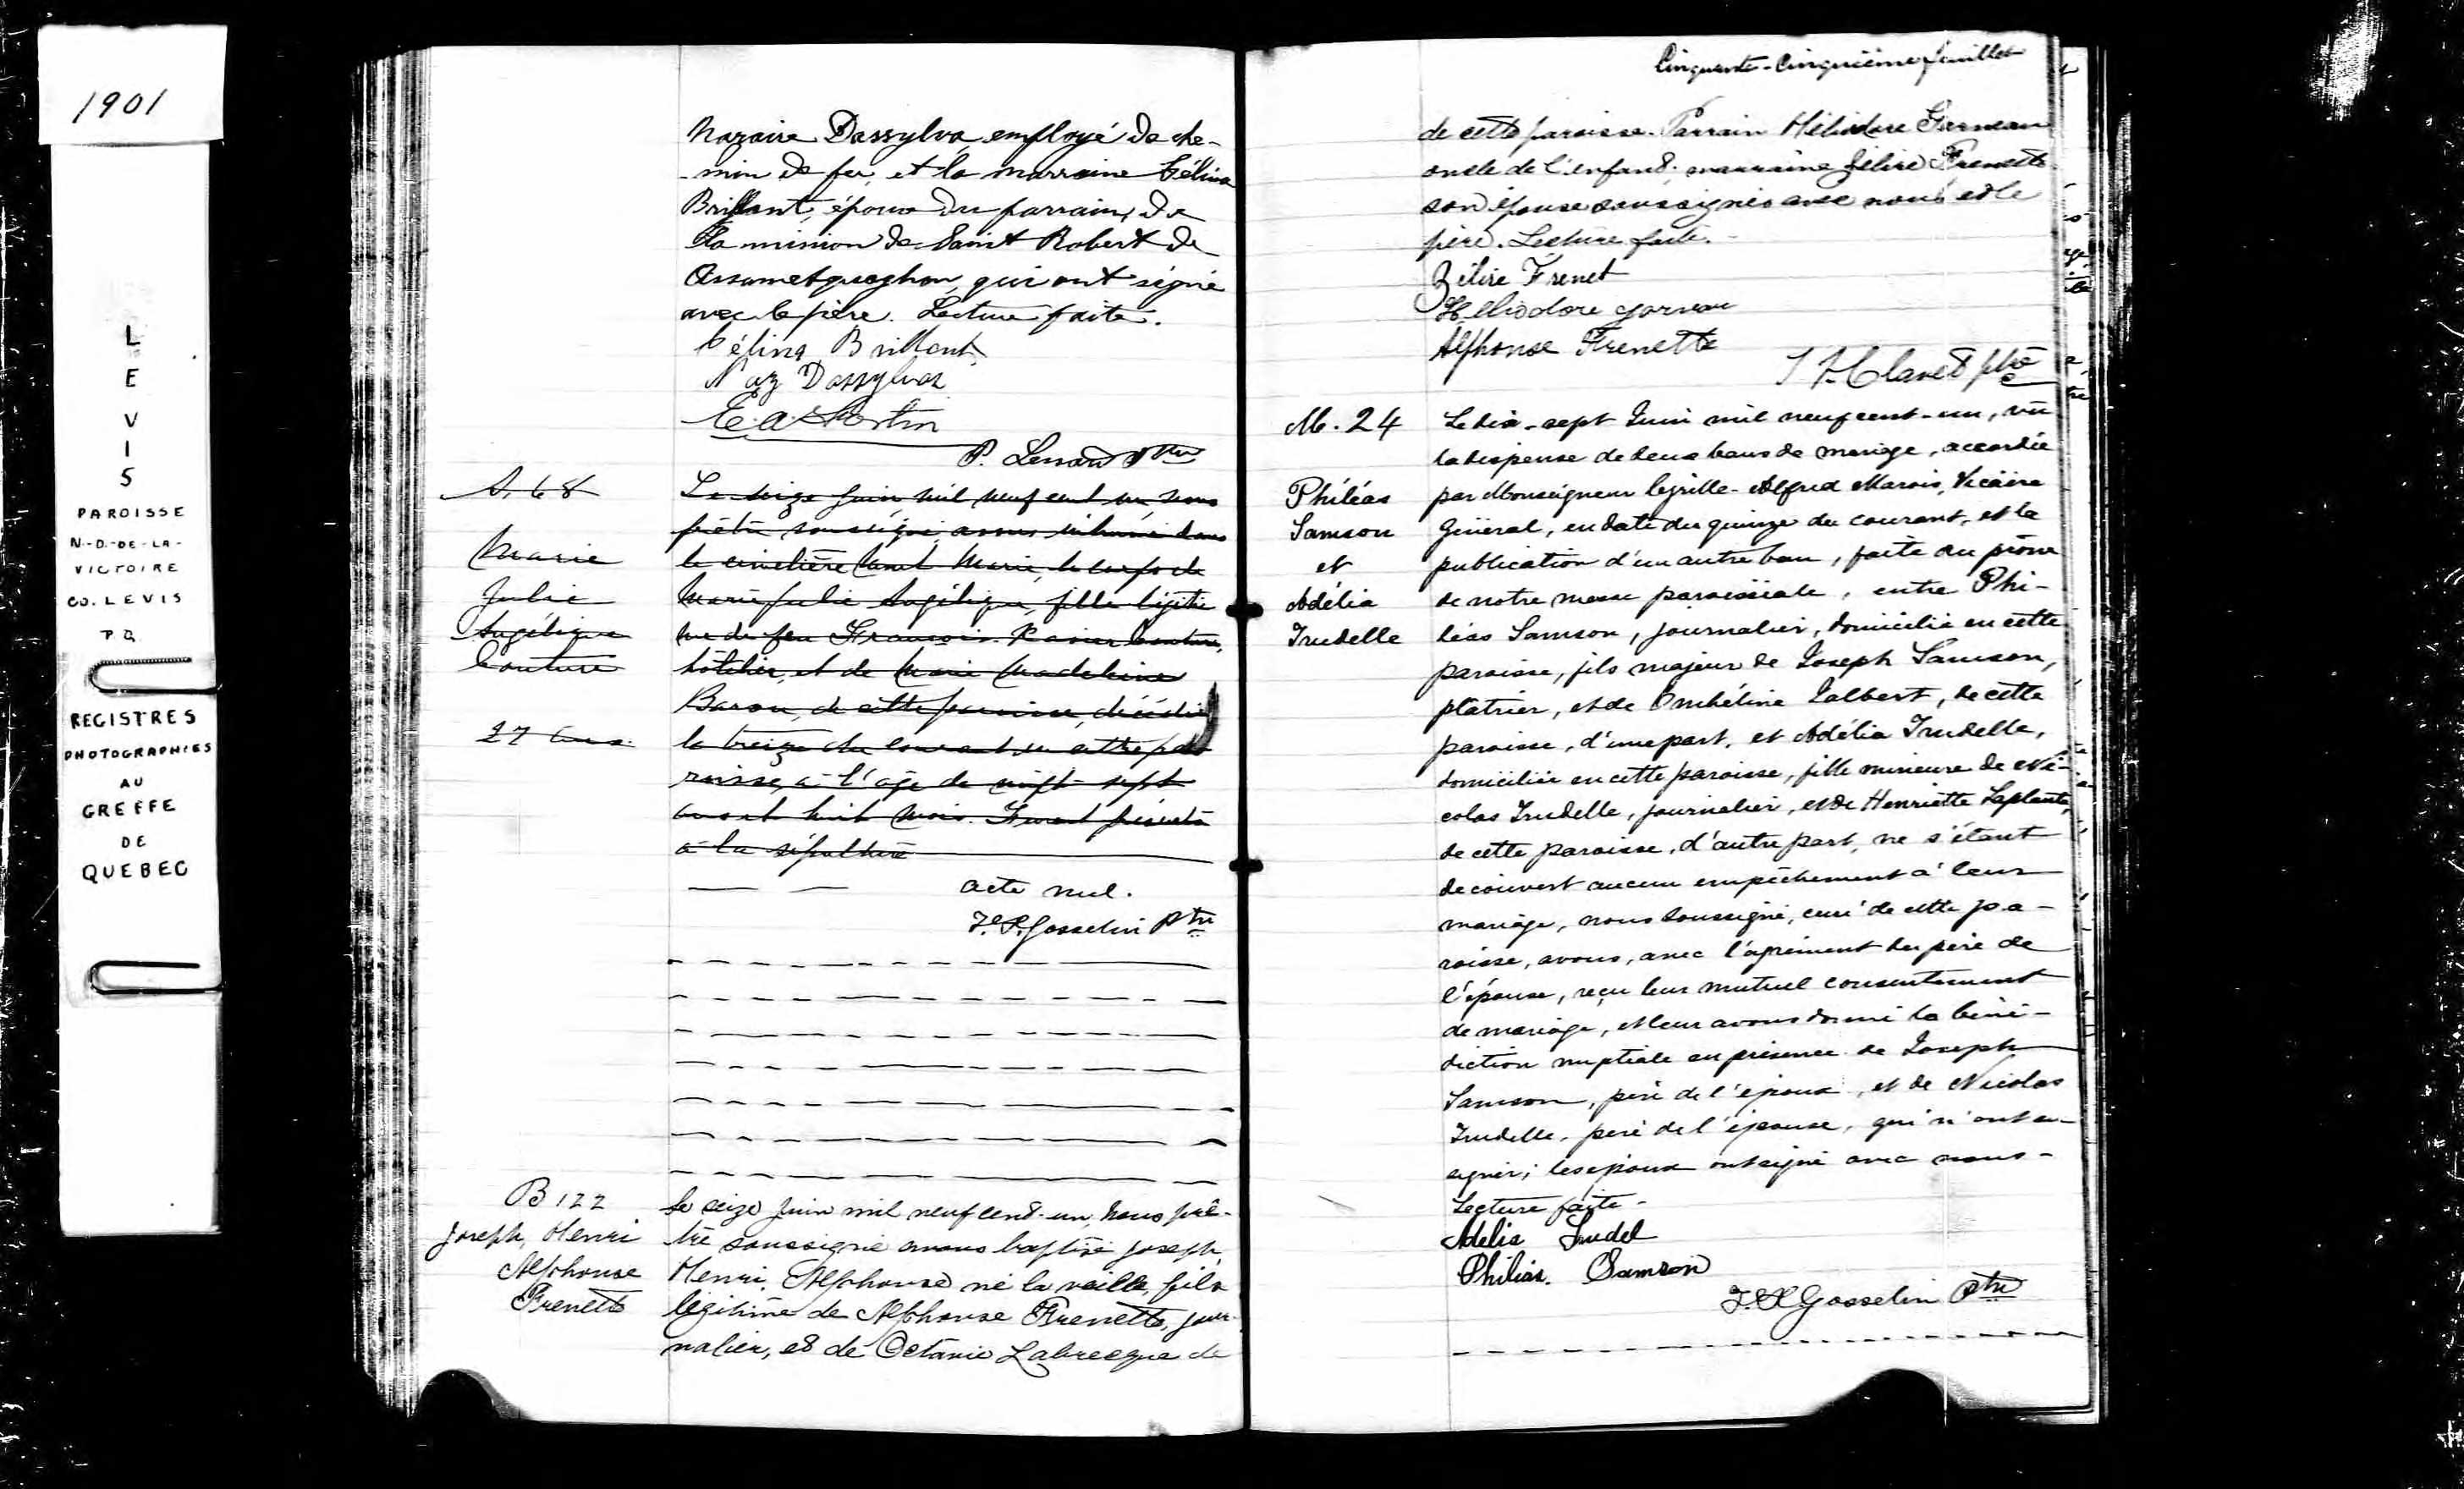 1901
L
E
V
I
S
PAROISSE
N.-D.-DE-LA-
VICTOIRE
CO. LEVIS
P.Q.
REGISTRES
PHOTOGRAPHIES
AU
GREFFE
DE
QUEBEC
Nazaire Dassylva employé de che-
-min de fer, et la marraine Célina
Brillant, épouse du parrain, de
la mission de Saint Robert de
Assametquaghan, qui ont signé
avec le père. Lecture faite.
Célina Brillant
Naz Dassylva
E. A. Fortin
P. Lessard Ptre
S. 68
Marie
Julie
Angélique
Couture
27 ans.
Le seize juin mil neuf cent un, nous
prêtre soussigné, avons inhumé dans
le cimetière Mont Marie, le corps de
Marie Julie Angélique, fille légiti
me de feu François Xavier Couture,
hôtelier, et de Marie Madeleine
Baron, de cette paroisse, décédée
le treize du courant en cette pa
roisse, à l'âge de vingt-sept
ans et huit mois. Furent présents
à la sépulture
acte nul.
F. X. Gosselin Ptre
B 122
Joseph, Henri
Alphonse
Frenette
Le seize juin mil neuf cent-un, nous prê-
tre soussigné avons baptisé Joseph,
Henri, Alphonse né la veille, fils
légitime de Alphonse Frenette, jour-
nalier, et de Octavie Labrecque de
Cinquante-Cinquième feuillet
de cette paroisse. Parrain Héliodore Garneau
oncle de l'enfant; marraine Zélire Frenette
son épouse soussignés avec nous et le
père. Lecture faite.
Zélire Frenet
Heliodore garneau
Alphonse Frenette
Clavet ptre
M. 24
Philéas
Samson
et
Adélia
Trudelle
Le dix-sept Juin mil neuf cent-un, vu
la dispense de deux bans de mariage, accordée
par Monseigneur Cyrille-Alfred Marois, Vicaire
Général, en date du quinze du courant, et la
publication d'un autre ban, faite au prône
de notre messe paroissiale, entre Phi-
léas Samson, journalier, domicilié en cette
paroisse, fils majeur de Joseph Samson,
plâtrier, et de Ombéline Jalbert, de cette
paroisse, d'une part, et Adélia Trudelle,
domiciliée en cette paroisse, fille mineure de Ni-
colas Trudelle, journalier, et de Henriette Laplante,
de cette paroisse, d'autre part, ne s'étant
découvert aucun empêchement à leur
mariage, nous soussigné, curé de cette pa-
roisse, avons, avec l'agrément du père de
l'épouse, reçu leur mutuel consentement
de mariage, et leur avons donné la béné-
diction nuptiale en présence de Joseph
Samson, père de l'époux, et de Nicolas
Trudelle, père de l'épouse, qui n'ont su
signer; les époux ont signé avec nous-
Lecture faite-
Adelia Trudel
Philias. Samson
F. X Gosselin Ptre